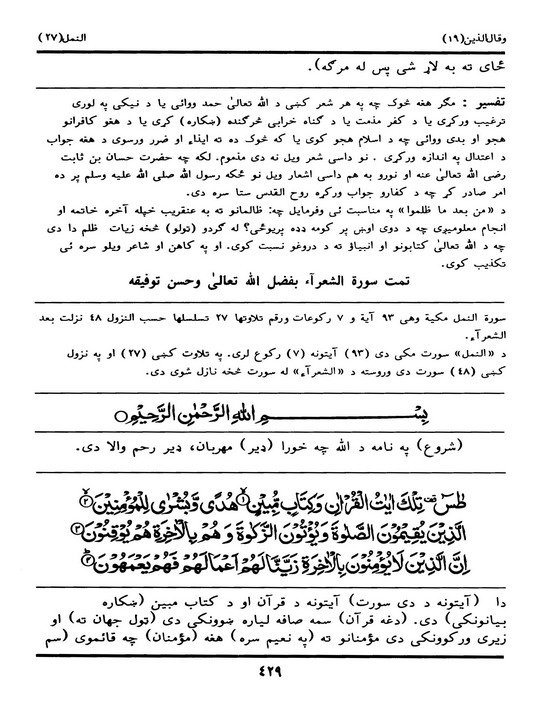 وقال‌الذین(١٩)
النمل(٢٧)
ځای ته به لاړ شی پس له مرګه).
تفسیر : مګر هغه څوک چه په هر شعر کښی د الله تعالیٰ حمد ووائی یا د نیکی په لوری
ترغیب ورکړی یا د کفر مذمت یا د ګناه خرابی څرګنده (ښکاره) کړی یا د هغو کافرانو
هجو او بدی ووائی چه د اسلام هجو کوی یا که څوک ده ته ایذاء او ضرر ورسوی د هغه جواب
د اعتدال په اندازه ورکړی . نو داسی شعر ویل نه دی مذموم. لکه چه حضرت حسان بن ثابت
رضی الله تعالیٰ عنه او نورو به هم داسی اشعار ویل نو ځکه رسول الله صلی الله علیه وسلم پر ده
امر صادر کړ چه د کفارو جواب ورکړه روح القدس ستا سره دی.
د «من بعد ما ظلموا» په مناسبت ئی وفرمایل چه: ظالمانو ته به عنقریب خپله آخره خاتمه او
انجام معلومیږی چه د دوی اوښ پر کومه ډډه پریوځی؟ له ګردو (ټولو) څخه زیات ظلم دا دی
چه د الله تعالیٰ کتابونو او انبیاؤ ته د دروغو نسبت کوی. او په کاهن او شاعر ویلو سره ئی
تکذیب کوی.
تمت سورة الشعرآء بفضل الله تعالیٰ وحسن توفیقه
سورة النمل مکیة وهی ٩٣ آیة و ٧ رکوعات ورقم تلاوتها ٢٧ تسلسلها حسب النزول ٤٨ نزلت بعد
الشعرآء.
د «النمل» سورت مکی دی (٩٣) آیتونه (٧) رکوع لری. په تلاوت کښی (٢٧) او په نزول
کښی (٤٨) سورت دی وروسته د «الشعرآء» له سورت څخه نازل شوی دی.
بِسْمِ اللهِ الرَّحْمٰنِ الرَّحِيْمِ
(شروع) په نامه د الله چه خورا (ډیر) مهربان، ډیر رحم والا دی.
طٰسٓ تِلْكَ اٰيٰتُ الْقُرْاٰنِ وَكِتَابٍ مُّبِيْنٍ ﴿١﴾ هُدًى وَّبُشْرٰى لِلْمُؤْمِنِيْنَ ﴿٢﴾
الَّذِيْنَ يُقِيْمُوْنَ الصَّلٰوةَ وَيُؤْتُوْنَ الزَّكٰوةَ وَهُمْ بِالْاٰخِرَةِ هُمْ يُوْقِنُوْنَ ﴿٣﴾
اِنَّ الَّذِيْنَ لَا يُؤْمِنُوْنَ بِالْاٰخِرَةِ زَيَّنَّا لَهُمْ اَعْمَالَهُمْ فَهُمْ يَعْمَهُوْنَ ﴿٤﴾
دا (آیتونه د دی سورت) آیتونه د قرآن او د کتاب مبین (ښکاره
بیانونکی) دی. (دغه قرآن) سمه صافه لیاره ښوونکی دی (ټول جهان ته) او
زیری ورکوونکی دی مؤمنانو ته (په نعیم سره) هغه (مؤمنان) چه قائموی (سم
٤٢٩